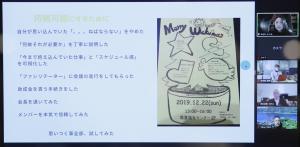 可視化するために
自分が思い込んでいた「。。。ねばならない」をやめた
「何故それが必要か」を丁寧に説明した
「今まで抱え込んでいた仕事」と「スケジュール感」
を可視化した
「ファシリテーター」に会議の進行をしてもらった
助成金を貰う手続きをした
会長を譲ってみた
メンバーを本気で信頼してみた
思いつく事全部、試してみた
2019.12.22(sun)
13:00-16:00